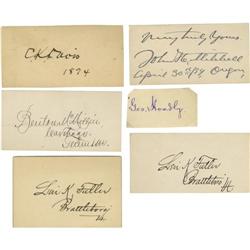 C K Davis
1874
Very truly Yours
John H. Mitchell
April 30th/79 Oregon
Benton McMillin
Carthage
Tennessee
Geo. Hoadly
Levi K. Fuller
Brattleboro
Vt
Levi K. Fuller
Brattleboro
Vt